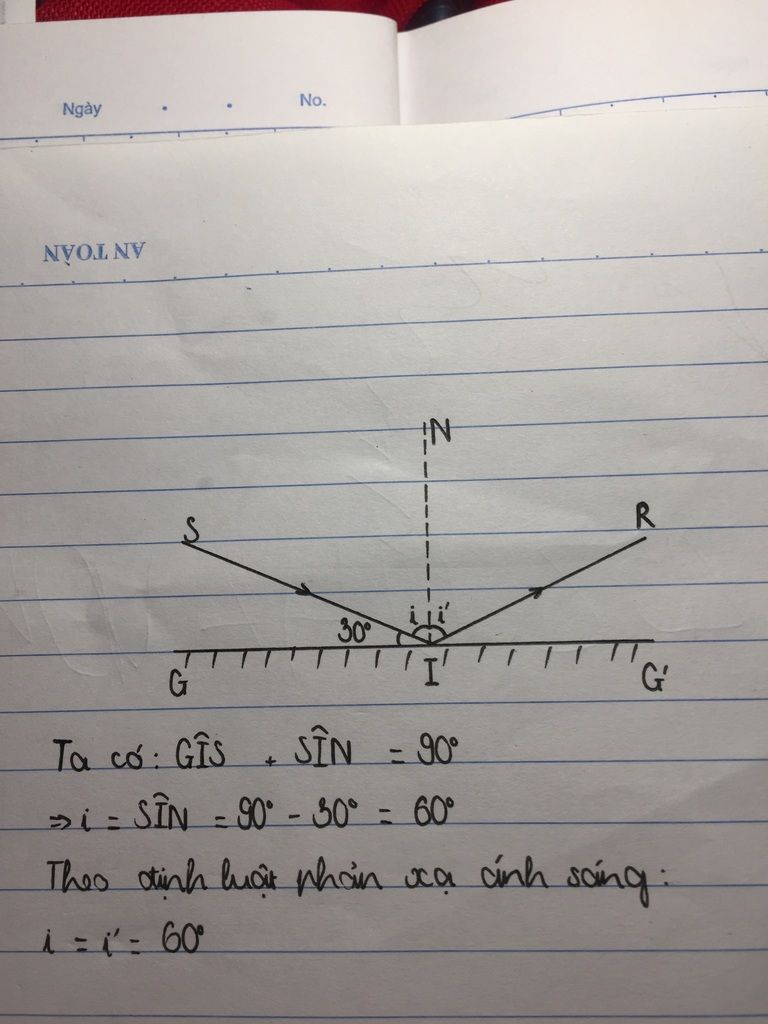 Ngày
No.
AN TOÀN
N
S
R
i i'
30°
G
I
G'
Ta có: GÎS + SÎN = 90°
⇒ i = SÎN = 90° - 30° = 60°
Theo định luật phản xạ ánh sáng:
i = i' = 60°